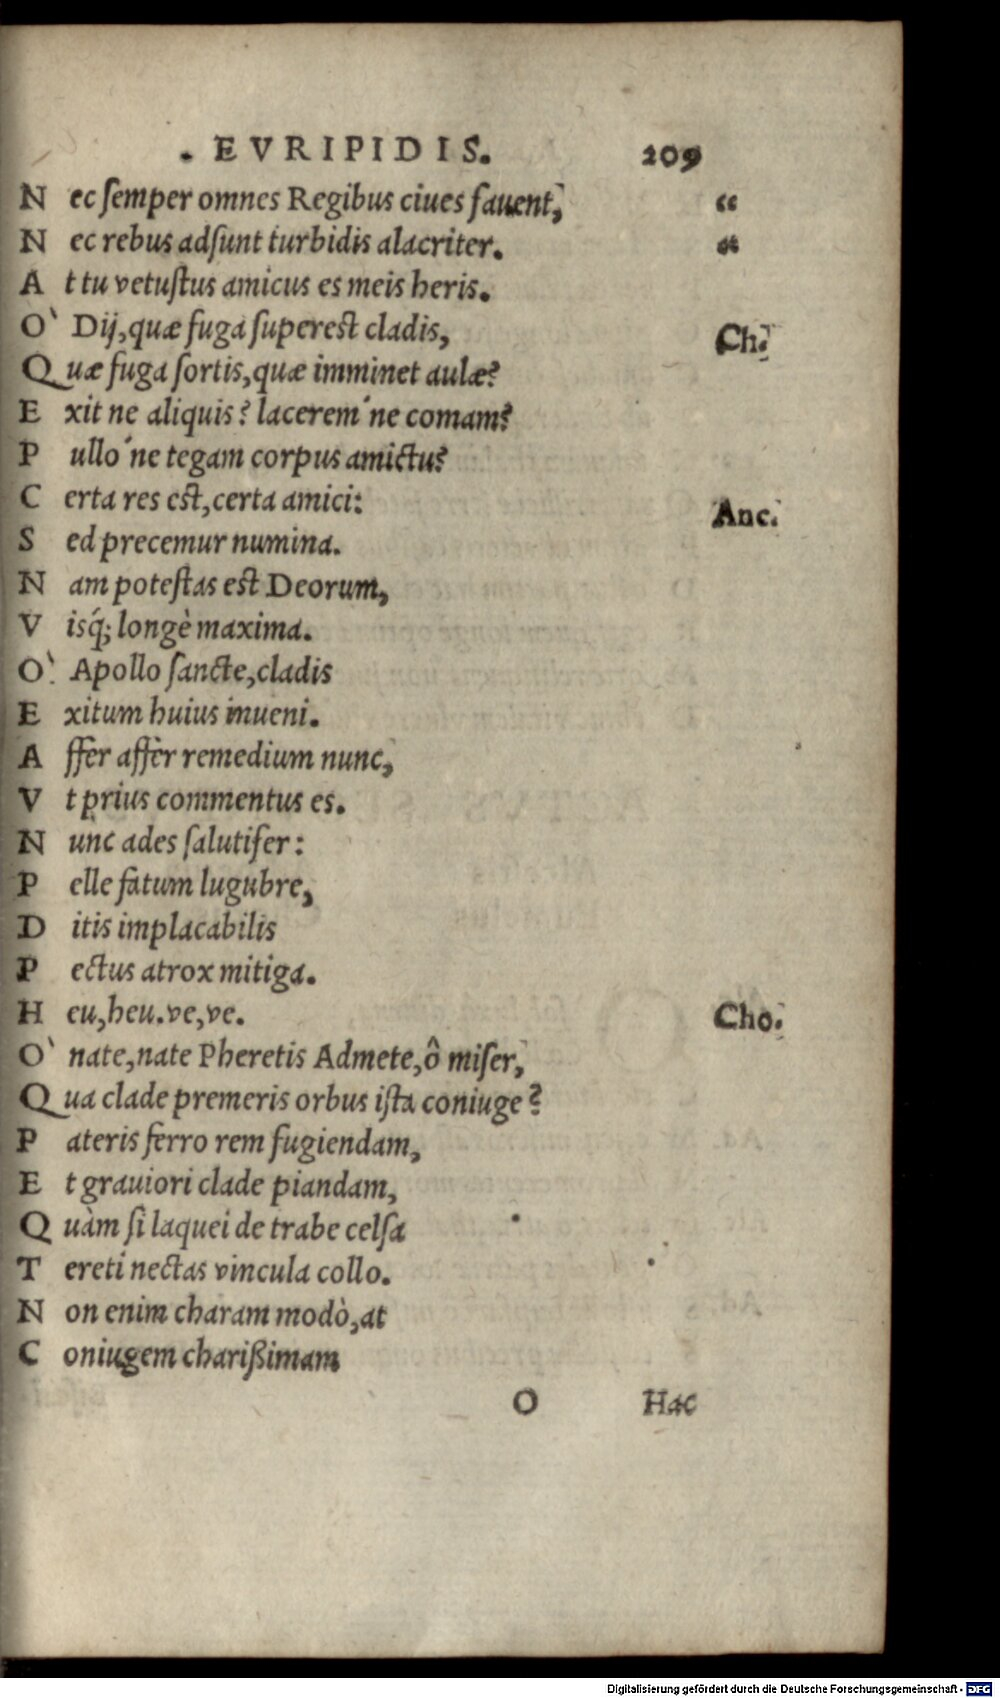 . EVRIPIDIS. 209
Nec semper omnes Regibus ciues fauent, “
Nec rebus adsunt turbidis alacriter. “
At tu vetustus amicus es meis heris.
O` Dij, quæ fuga superest cladis, Ch.
Quæ fuga sortis, quæ imminet aulæ?
Exit ne aliquis? lacerem´ne comam?
Pullo´ne tegam corpus amictu?
Certa res est, certa amici: Anc.
Sed precemur numina.
Nam potestas est Deorum,
Visq́; longè maxima.
O` Apollo sancte, cladis
Exitum huius inueni.
Affer affer remedium nunc,
Vt prius commentus es.
Nunc ades salutifer:
Pelle fatum lugubre,
Ditis implacabilis
Pectus atrox mitiga.
Heu, heu. ve, ve. Cho.
O` nate, nate Pheretis Admete, ô miser,
Qua clade premeris orbus ista coniuge?
Pateris ferro rem fugiendam,
Et grauiori clade piandam,
Quàm si laquei de trabe celsa
Tereti nectas vincula collo.
Non enim charam modò, at
Coniugem charißimam
O Hac
Digitalisierung gefördert durch die Deutsche Forschungsgemeinschaft - DFG